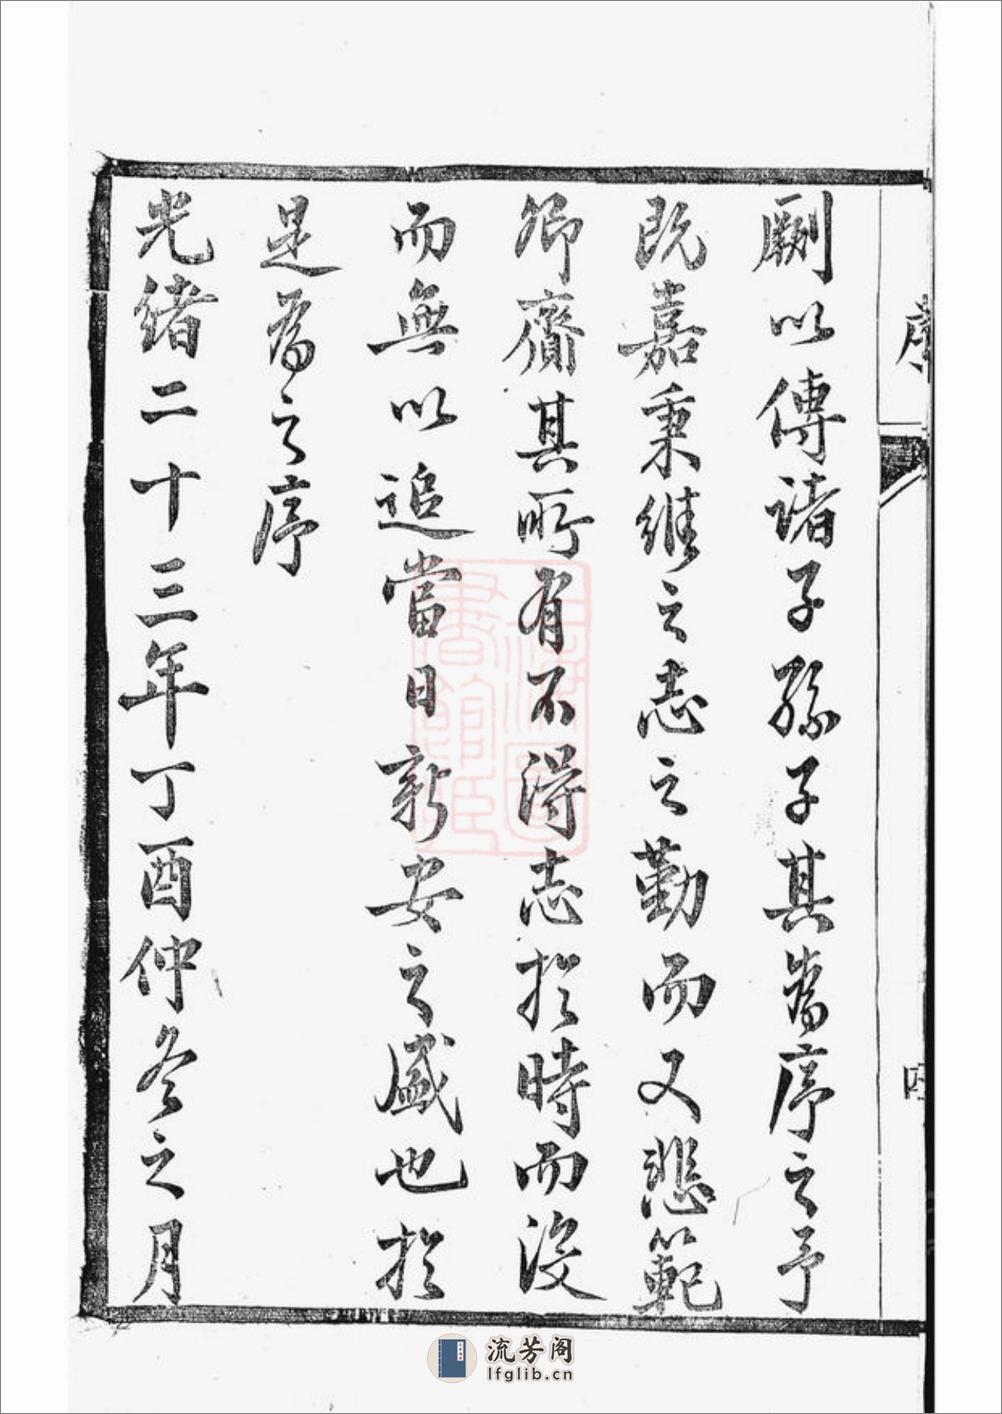 序
四
劂以傳諸子孫子其為序之予
既嘉秉維之志之勤而又悲範
卿齎其所有不得志於時而沒
而無以追當日新安之盛也於
是為之序
光緒二十三年丁酉仲冬之月
流芳阁
lfglib.cn